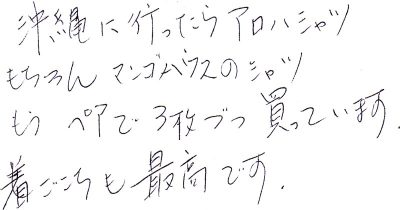 沖縄に行ったらアロハシャツ
もちろんマンゴハウスのシャツ
もう ペアで3枚づつ買っています.
着ごこちも最高です.